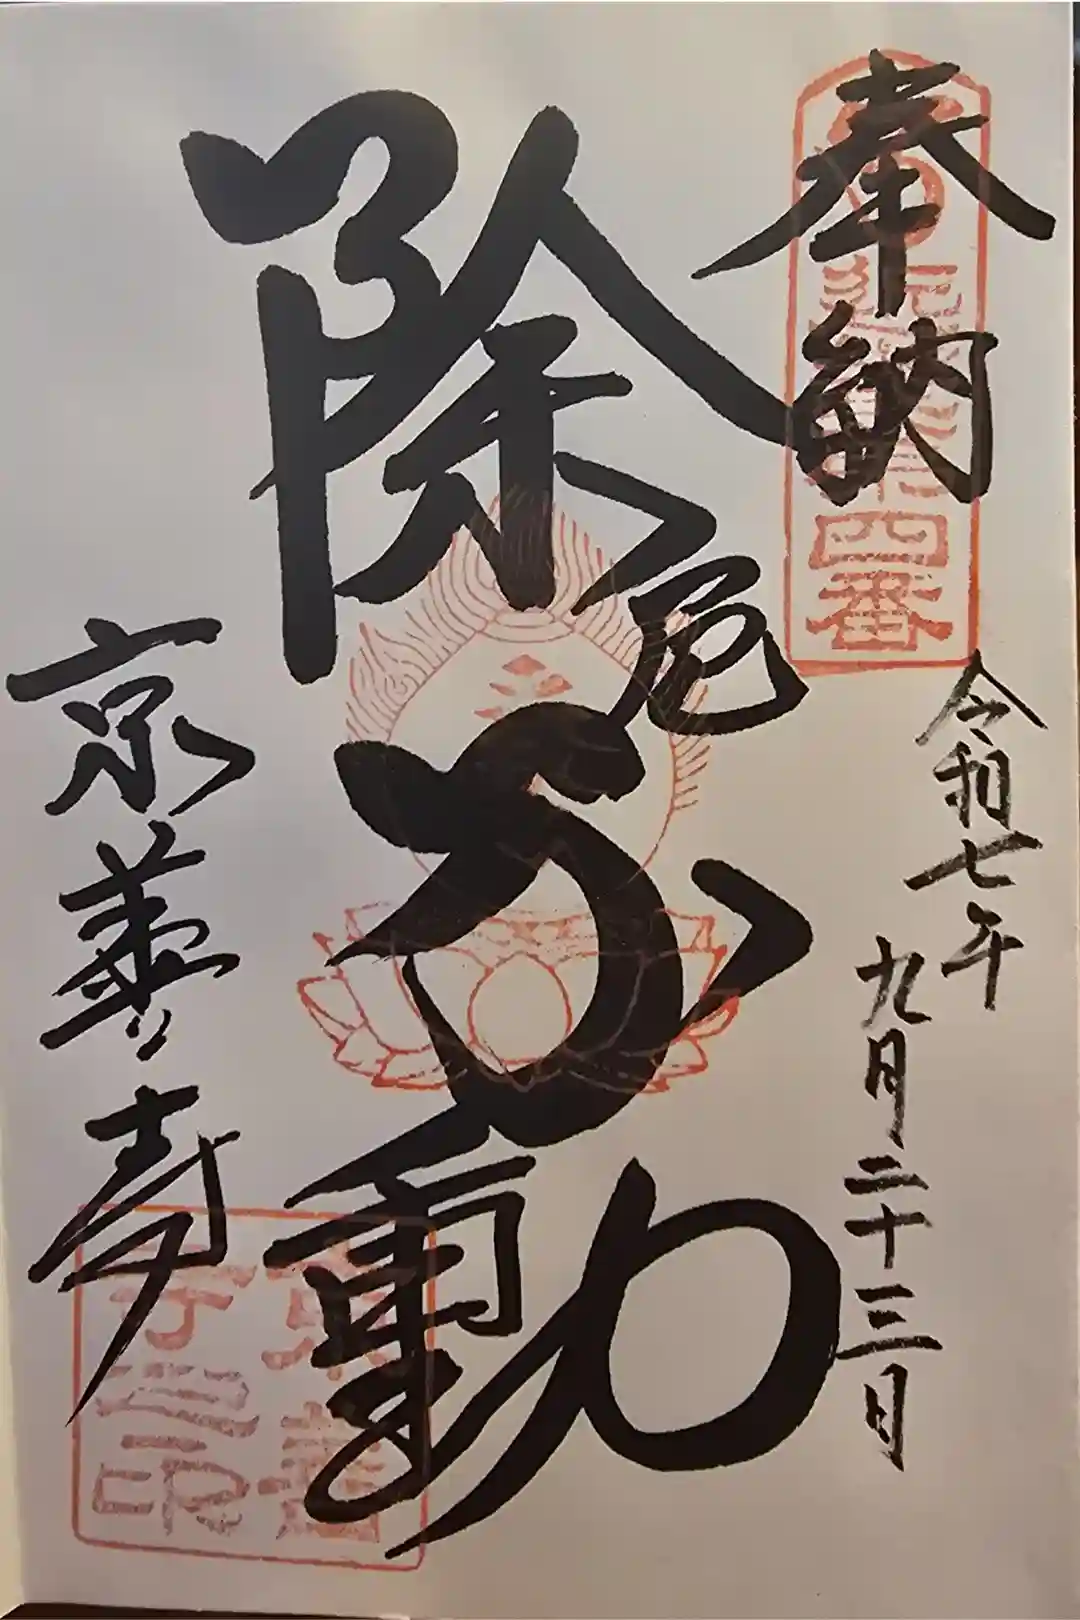 奉納
四番
令和七年
九月二十三日
除厄不動
京善寺